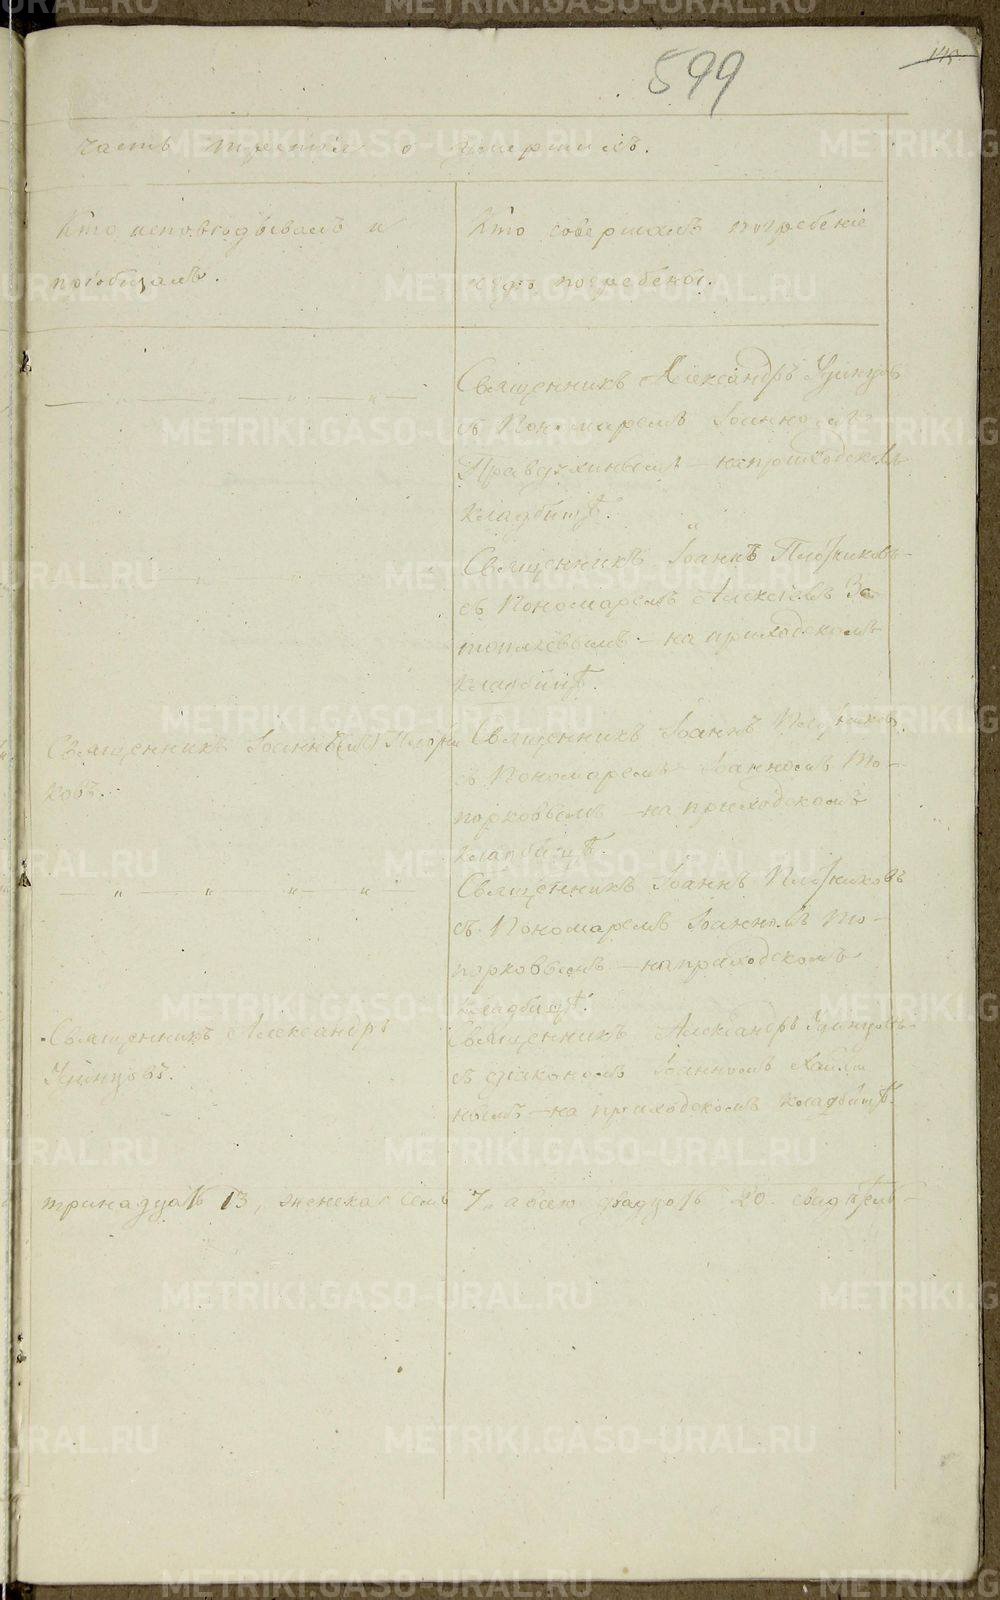 599
145
Часть третия о умершихъ.
Кто исповѣдывалъ и
пріобщалъ.
Кто совершалъ погребеніе
и гдѣ погребены.
Священникъ Александръ Удинцовъ
съ Пономаремъ Іоанномъ
на приходскомъ
кладбищѣ.
Священникъ Іоаннъ Плотниковъ
съ Пономаремъ Алексѣемъ За-
топляевымъ – на приходскомъ
кладбищѣ.
Священникъ Іоаннъ Плотни
ковъ.
Священникъ Іоаннъ Плотниковъ
съ Пономаремъ Іоанномъ То-
порковымъ – на приходскомъ
кладбищѣ.
Священникъ Іоаннъ Плотниковъ
съ Пономаремъ Іоанномъ То-
порковымъ – на приходскомъ
кладбищѣ.
Священникъ Александръ
Удинцовъ.
Священникъ Александръ Удинцовъ
съ діакономъ Іоанномъ
на приходскомъ кладбищѣ.
тринадцать 13, женска семь 7, а всего двадцать 20.
METRIKI.GASO-URAL.RU